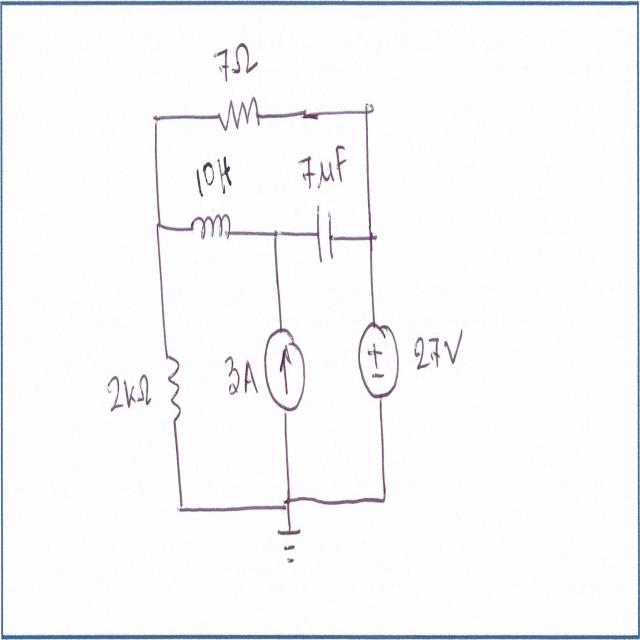 7Ω
10H
7µF
2kΩ
3A
27V